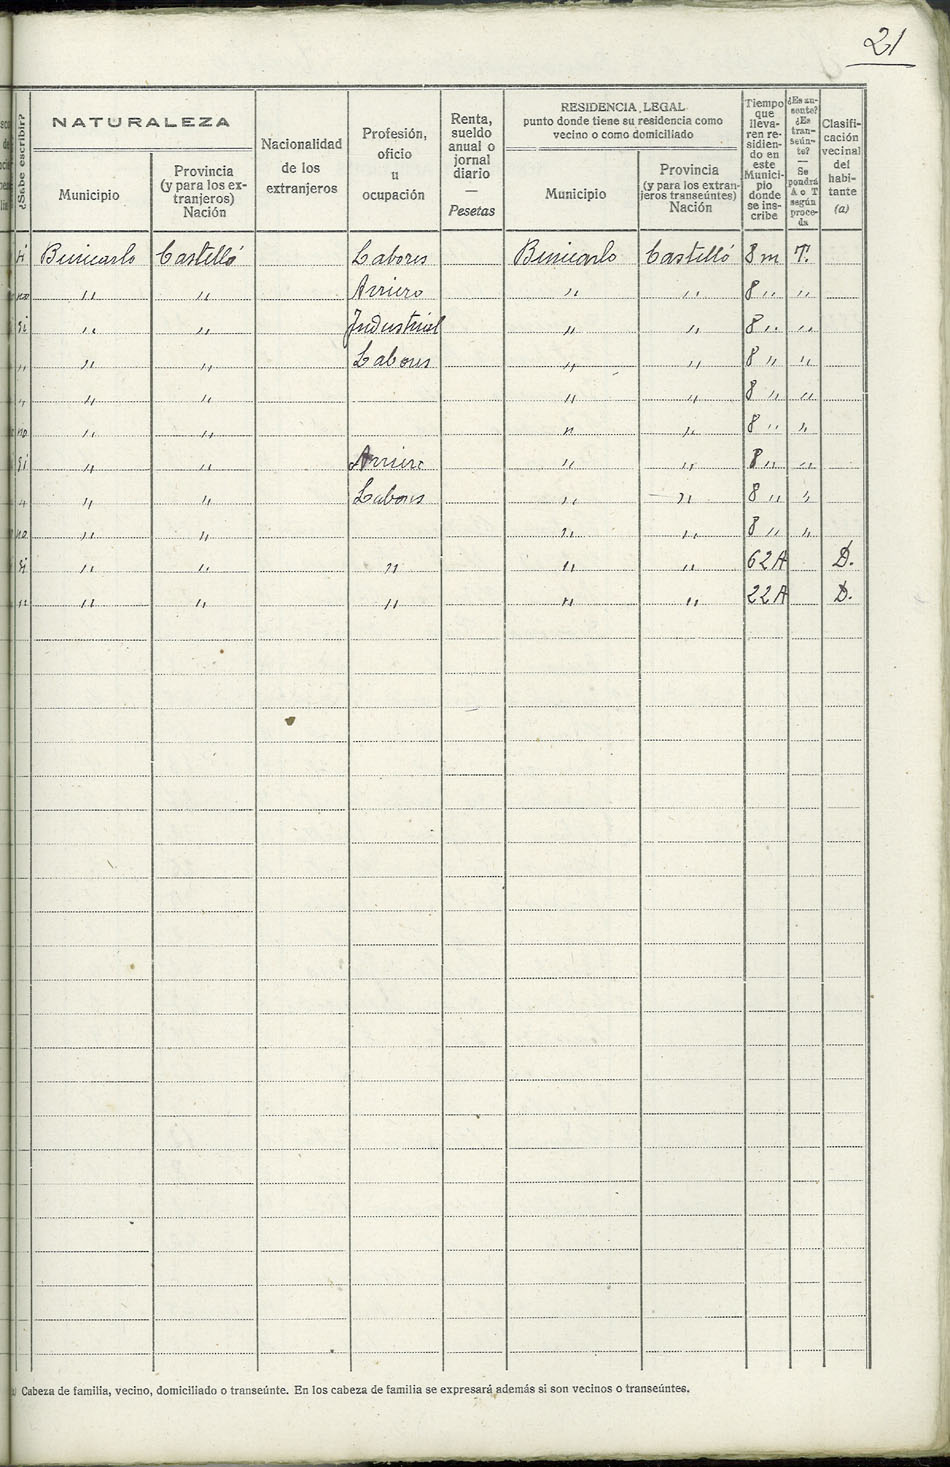 21
¿Sabe escribir?
NATURALEZA
Municipio
Provincia
(y para los ex-
tranjeros)
Nación
Nacionalidad
de los
extranjeros
Profesión,
oficio
u
ocupación
Renta,
sueldo
anual o
jornal
diario
—
Pesetas
RESIDENCIA LEGAL
punto donde tiene su residencia como
vecino o como domiciliado
Municipio
Provincia
(y para los extran-
jeros transeúntes)
Nación
Tiempo
que
lleva-
ren re-
sidien-
do en
este
Munici-
pio
donde
se ins-
cribe
¿Es au-
sente?
¿Es
tran-
seún-
te?
—
Se
pondrá
A o T
según
proce-
da
Clasifi-
cación
vecinal
del
habi-
tante
(a)
si Benicarlo Castelló Labores Benicarlo Castelló 8 m T.
no " " Arriero " " 8 " "
si " " Industrial " " 8 " "
" " " Labores " " 8 " "
" " " " " 8 " "
no " " " " 8 " "
si " " Arriero " " 8 " "
" " " Labores " " 8 " "
no " " " " 8 " "
si " " " " " 62 A D.
" " " " " " 22 A D.
Cabeza de familia, vecino, domiciliado o transeúnte. En los cabeza de familia se expresará además si son vecinos o transeúntes.